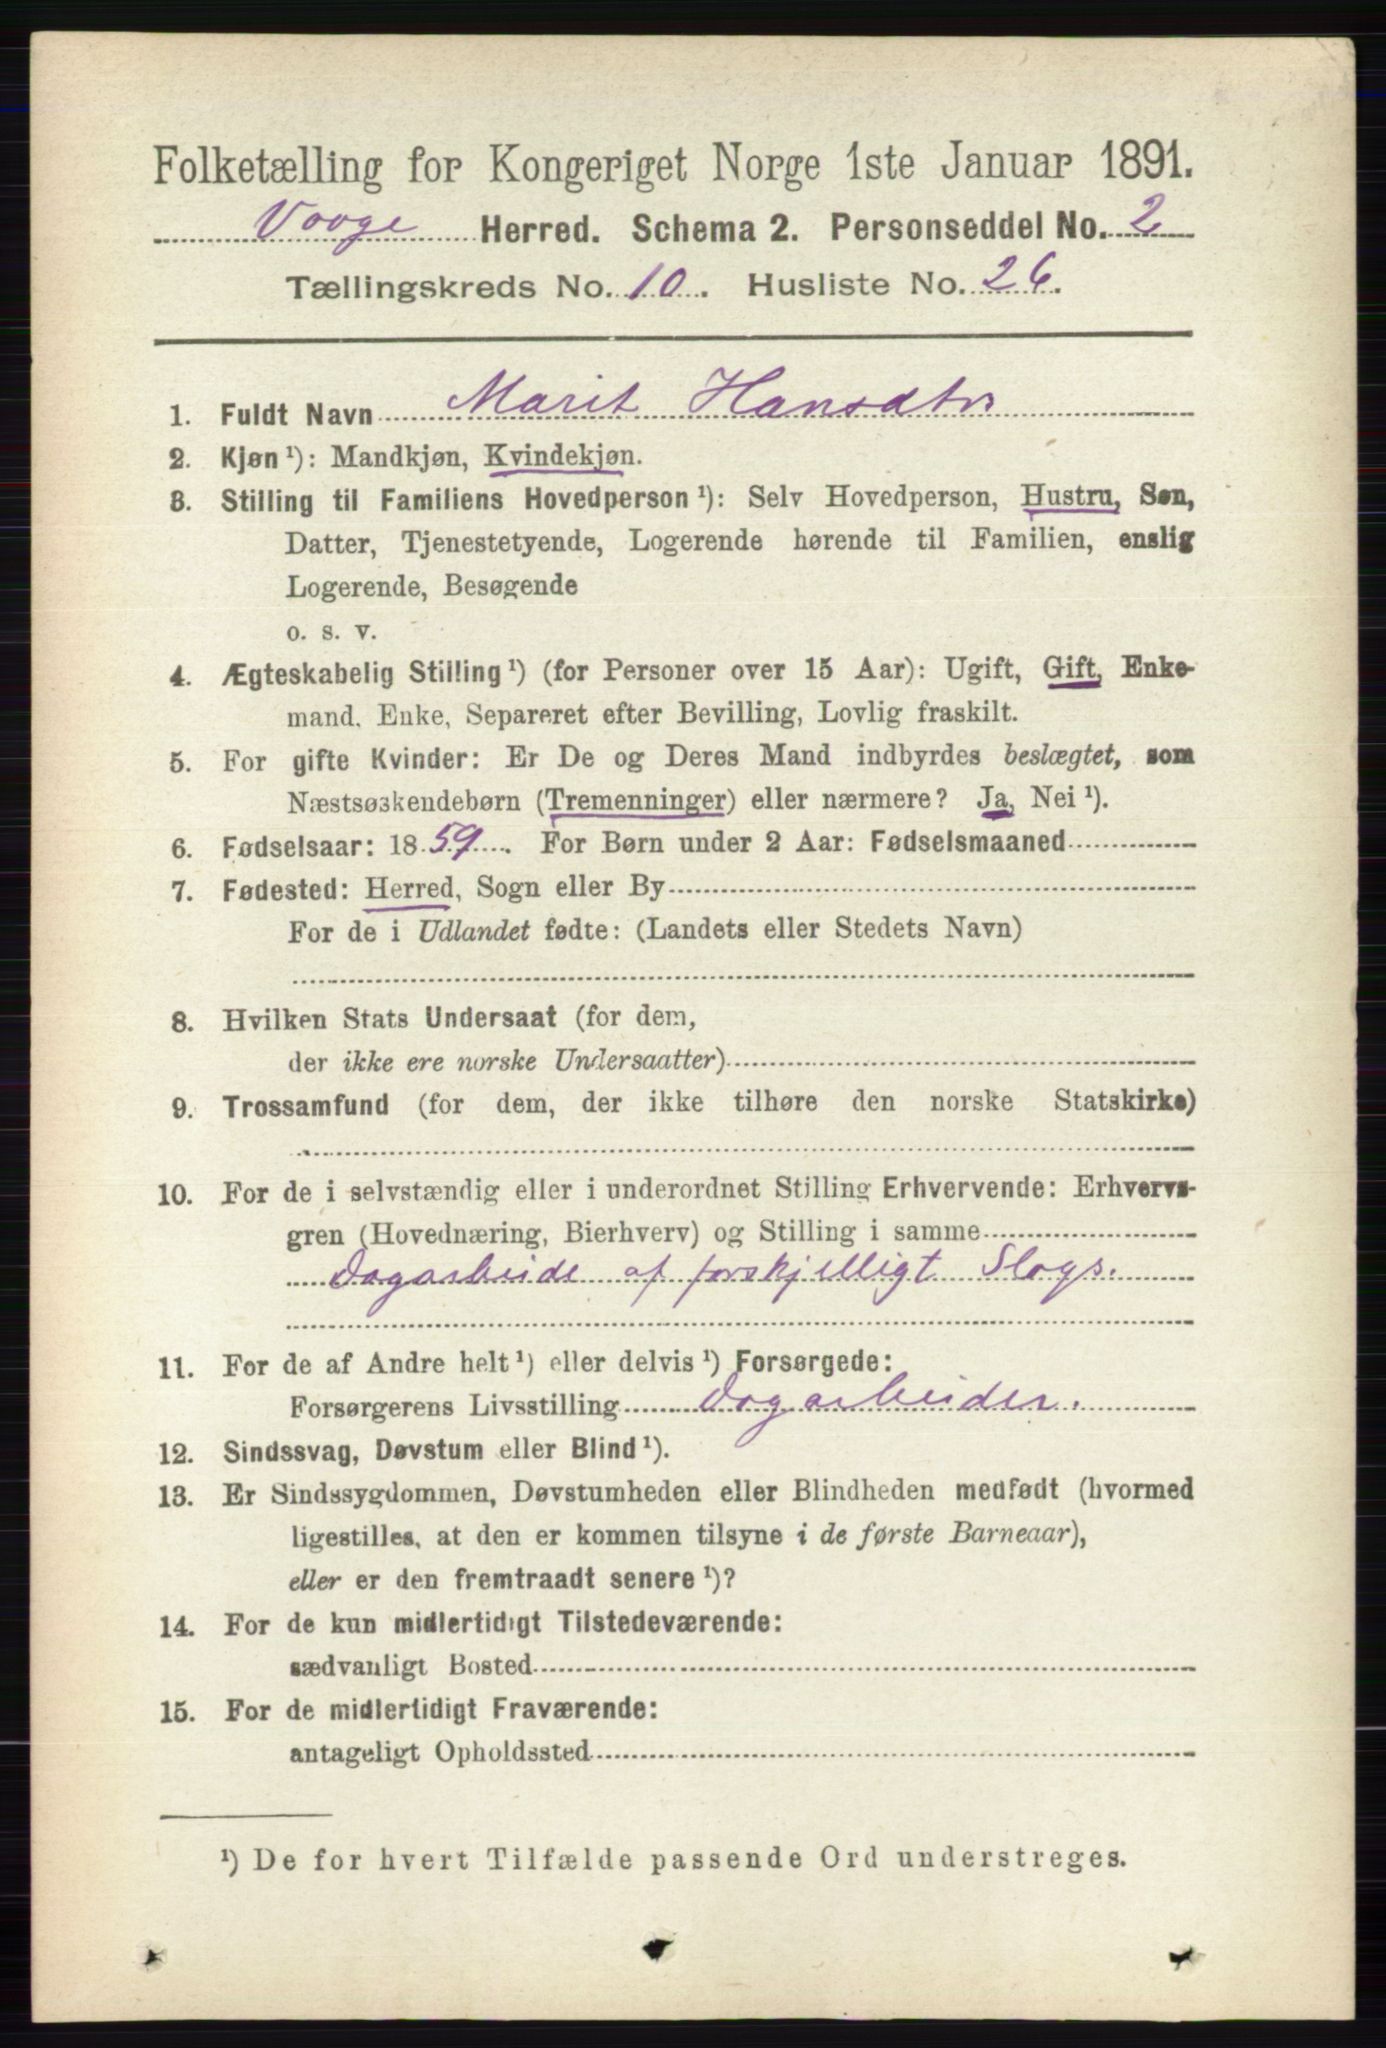 Folketælling for Kongeriget Norge 1ste Januar 1891.
Vaage Herred. Schema 2. Personseddel No. 2
Tællingskreds No. 10. Husliste No. 26.
1. Fuldt Navn Marit Hansdtr
2. Kjøn ¹): Mandkjøn, Kvindekjøn.
3. Stilling til Familiens Hovedperson ¹): Selv Hovedperson, Hustru, Søn,
Datter, Tjenestetyende, Logerende hørende til Familien, enslig
Logerende, Besøgende
o. s. v.
4. Ægteskabelig Stilling ¹) (for Personer over 15 Aar): Ugift, Gift, Enke-
mand, Enke, Separeret efter Bevilling, Lovlig fraskilt.
5. For gifte Kvinder: Er De og Deres Mand indbyrdes beslægtet, som
Næstsøskendebørn (Tremenninger) eller nærmere? Ja, Nei ¹).
6. Fødselsaar: 1859. For Børn under 2 Aar: Fødselsmaaned
7. Fødested: Herred, Sogn eller By
For de i Udlandet fødte: (Landets eller Stedets Navn)
8. Hvilken Stats Undersaat (for dem,
der ikke ere norske Undersaatter)
9. Trossamfund (for dem, der ikke tilhøre den norske Statskirke)
10. For de i selvstændig eller i underordnet Stilling Erhvervende: Erhvervs-
gren (Hovednæring, Bierhverv) og Stilling i samme
Dagarbeide af forskjelligt Slags.
11. For de af Andre helt ¹) eller delvis ¹) Forsørgede:
Forsørgerens Livsstilling Dagarbeider.
12. Sindssvag, Døvstum eller Blind ¹).
13. Er Sindssygdommen, Døvstumheden eller Blindheden medfødt (hvormed
ligestilles, at den er kommen tilsyne i de første Barneaar),
eller er den fremtraadt senere ¹)?
14. For de kun midlertidigt Tilstedeværende:
sædvanligt Bosted
15. For de midlertidigt Fraværende:
antageligt Opholdssted
¹) De for hvert Tilfælde passende Ord understreges.